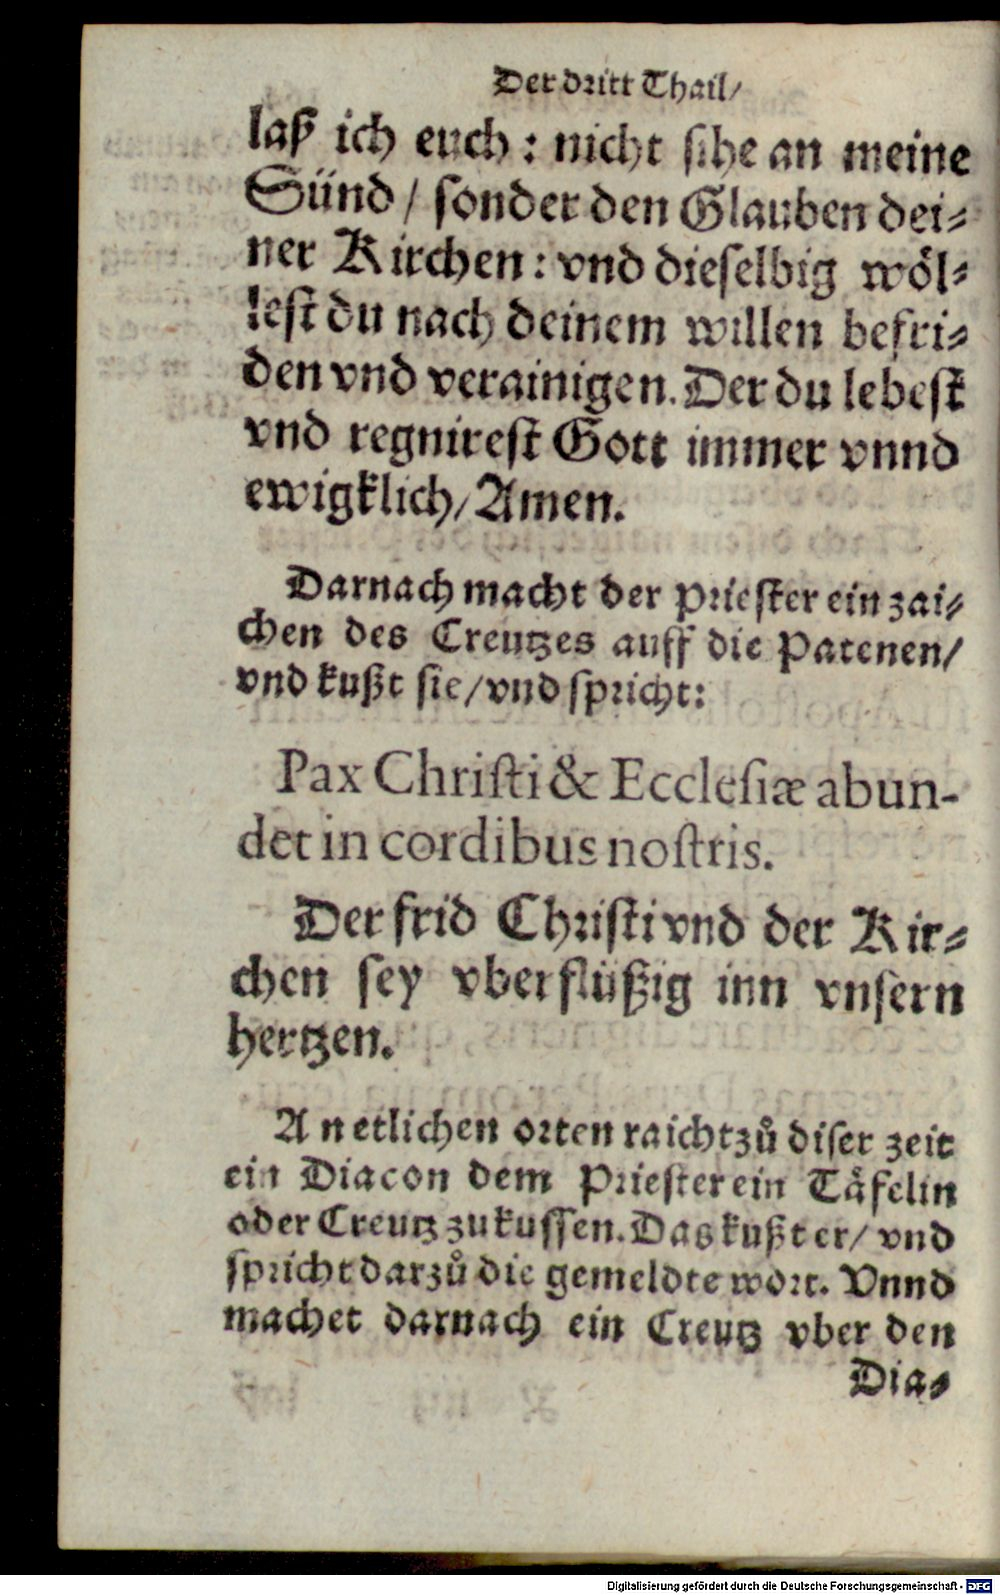 Der dritt Thail/
laß ich euch: nicht sihe an meine
Sünd/ sonder den Glauben dei-
ner Kirchen: vnd dieselbig wöl-
lest du nach deinem willen befri-
den vnd verainigen. Der du lebest
vnd regnirest Gott immer vnnd
ewigklich/ Amen.
Darnach macht der Priester ein zai-
chen des Creutzes auff die Patenen/
vnd kußt sie/ vnd spricht:
Pax Christi & Ecclesiæ abun-
det in cordibus nostris.
Der frid Christi vnd der Kir-
chen sey vberflüßig inn vnsern
hertzen.
An etlichen orten raicht zů diser zeit
ein Diacon dem Priester ein Täfelin
oder Creutz zu kussen. Das kußt er/ vnd
spricht darzů die gemeldte wort. Vnnd
machet darnach ein Creutz vber den
Dia-
Digitalisierung gefördert durch die Deutsche Forschungsgemeinschaft - DFG